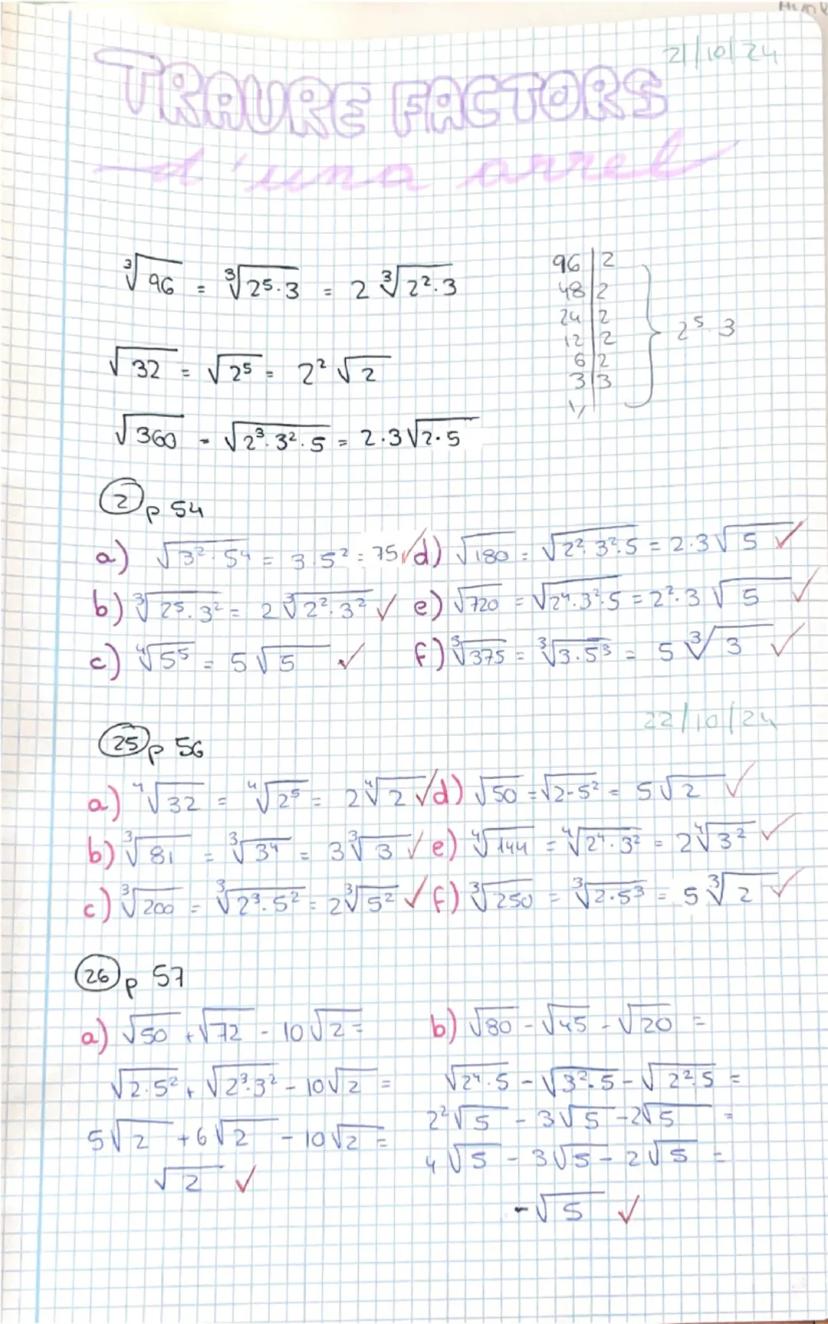 21/10/24
TRAURE FACTORS
d'una arrel
∛96 = ∛(2⁵·3) = 2 ∛(2²·3)
96 | 2
48 | 2
24 | 2
12 | 2
6 | 2
3 | 3
1
} 2⁵·3
√32 = √2⁵ = 2² √2
√360 = √(2³·3²·5) = 2·3√(2·5)
② p 54
a) √(3²·5⁴) = 3·5² = 75 ✓ d) √180 = √(2²·3²·5) = 2·3√5 ✓
b) ∛(2⁵·3²) = 2∛(2²·3²) ✓ e) √720 = √(2⁴·3²·5) = 2²·3√5 ✓
c) ∜5⁵ = 5√5 ✓ f) ∛375 = ∛(3·5³) = 5∛3 ✓
22/10/24
㉕ p 56
a) ∜32 = ∜2⁵ = 2∜2 ✓ d) √50 = √(2·5²) = 5√2 ✓
b) ∛81 = ∛3⁴ = 3∛3 ✓ e) ∜144 = ∜(2⁴·3²) = 2∜3² ✓
c) ∛200 = ∛(2³·5²) = 2∛5² ✓ f) ∛250 = ∛(2·5³) = 5∛2 ✓
㉖ p 57
a) √50 + √72 - 10√2 =
√(2·5²) + √(2³·3²) - 10√2 =
5√2 + 6√2 - 10√2 =
√2 ✓
b) √80 - √45 - √20 =
√(2⁴·5) - √(3²·5) - √(2²·5) =
2²√5 - 3√5 - 2√5 =
4√5 - 3√5 - 2√5 =
-√5 ✓